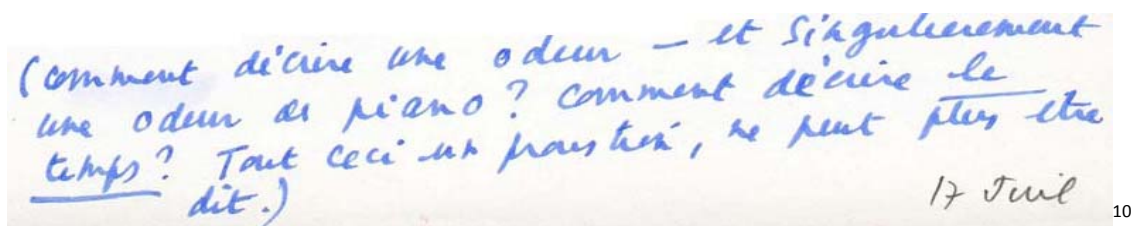 (comment décrire une odeur – et singulièrement
une odeur de piano ? comment décrire le
temps ? Tout ceci un proustien, ne peut plus être
dit.)
17 Juil
10